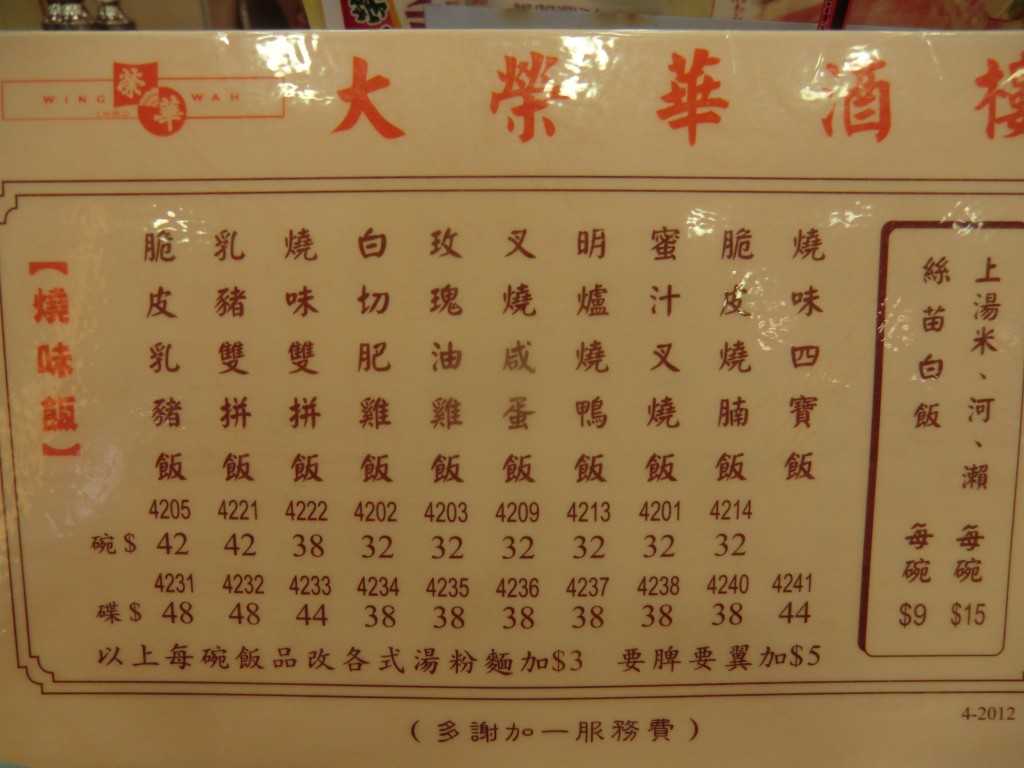 WING WAH
榮華
大榮華酒樓
【燒味飯】
燒味四寶飯
脆皮燒腩飯
蜜汁叉燒飯
明爐燒鴨飯
叉燒咸蛋飯
玫瑰油雞飯
白切肥雞飯
燒味雙拼飯
乳豬雙拼飯
脆皮乳豬飯
4205 4221 4222 4202 4203 4209 4213 4201 4214
碗$ 42 42 38 32 32 32 32 32 32
4231 4232 4233 4234 4235 4236 4237 4238 4240 4241
碟$ 48 48 44 38 38 38 38 38 38 44
以上每碗飯品改各式湯粉麵加$3 要脾要翼加$5
上湯米、河、瀨 每碗 $15
絲苗白飯 每碗 $9
4-2012
(多謝加一服務費)